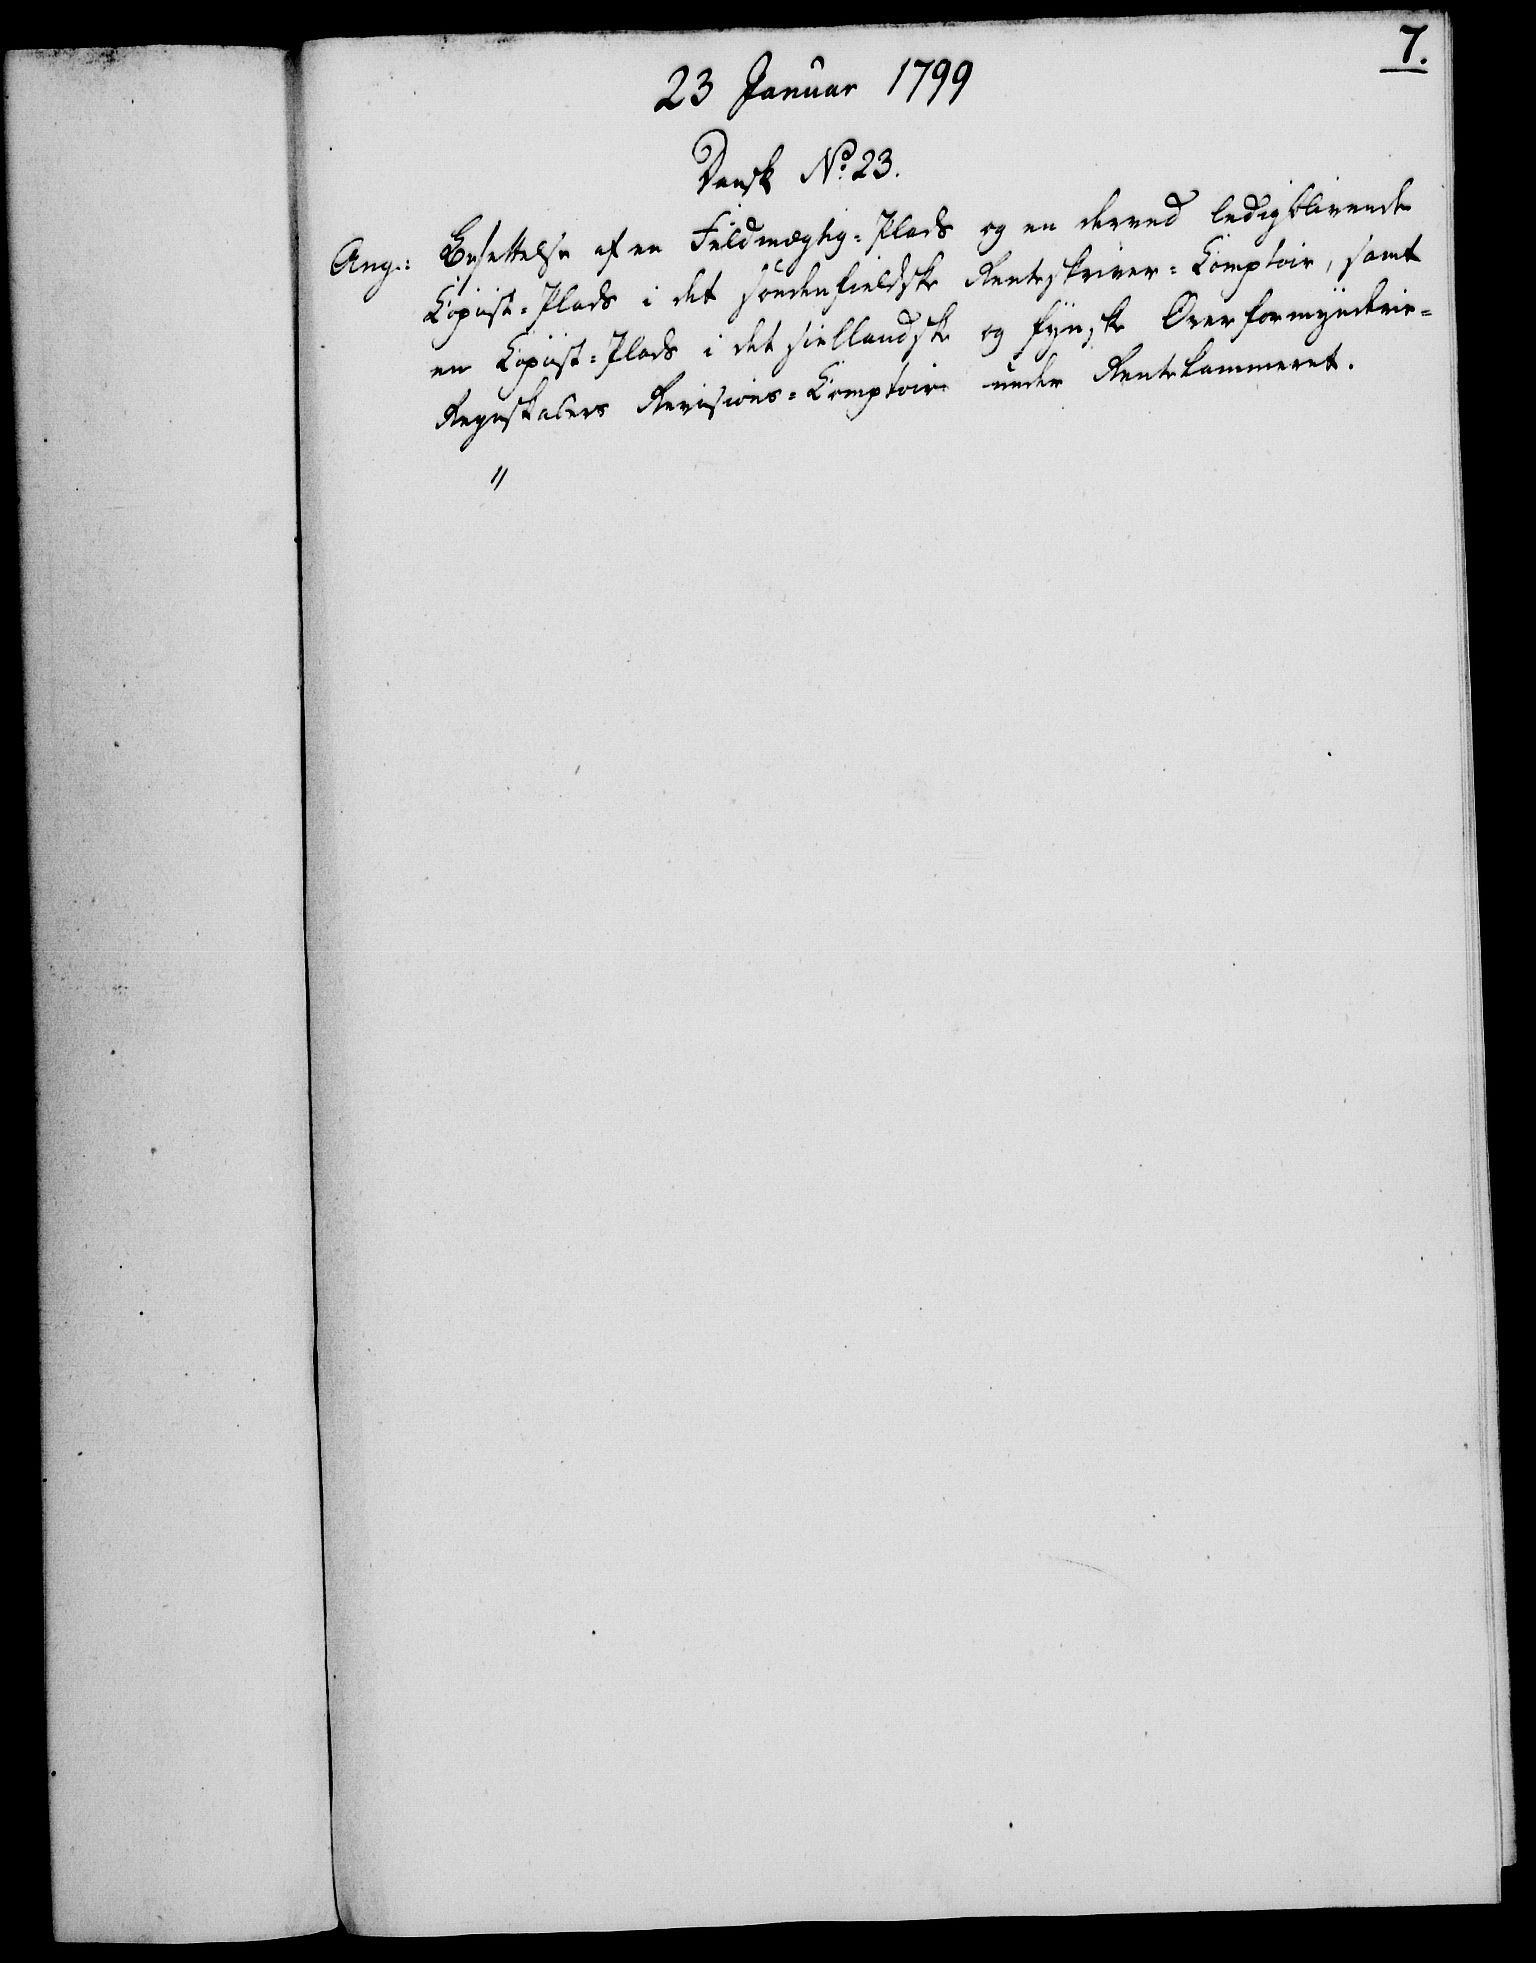 7.
23 Januar 1799
Dansk No. 23.
Ang.: Besættelse af en Fuldmægtig-Plads og en derved ledigblivende
Copiist-Plads i det söndenfieldske Renteskriver-Comptoir, samt
en Copiist-Plads i det siellandske og fynske Overformynderie-
Regnskabers Revisions-Comptoir under Rentekammeret.
"